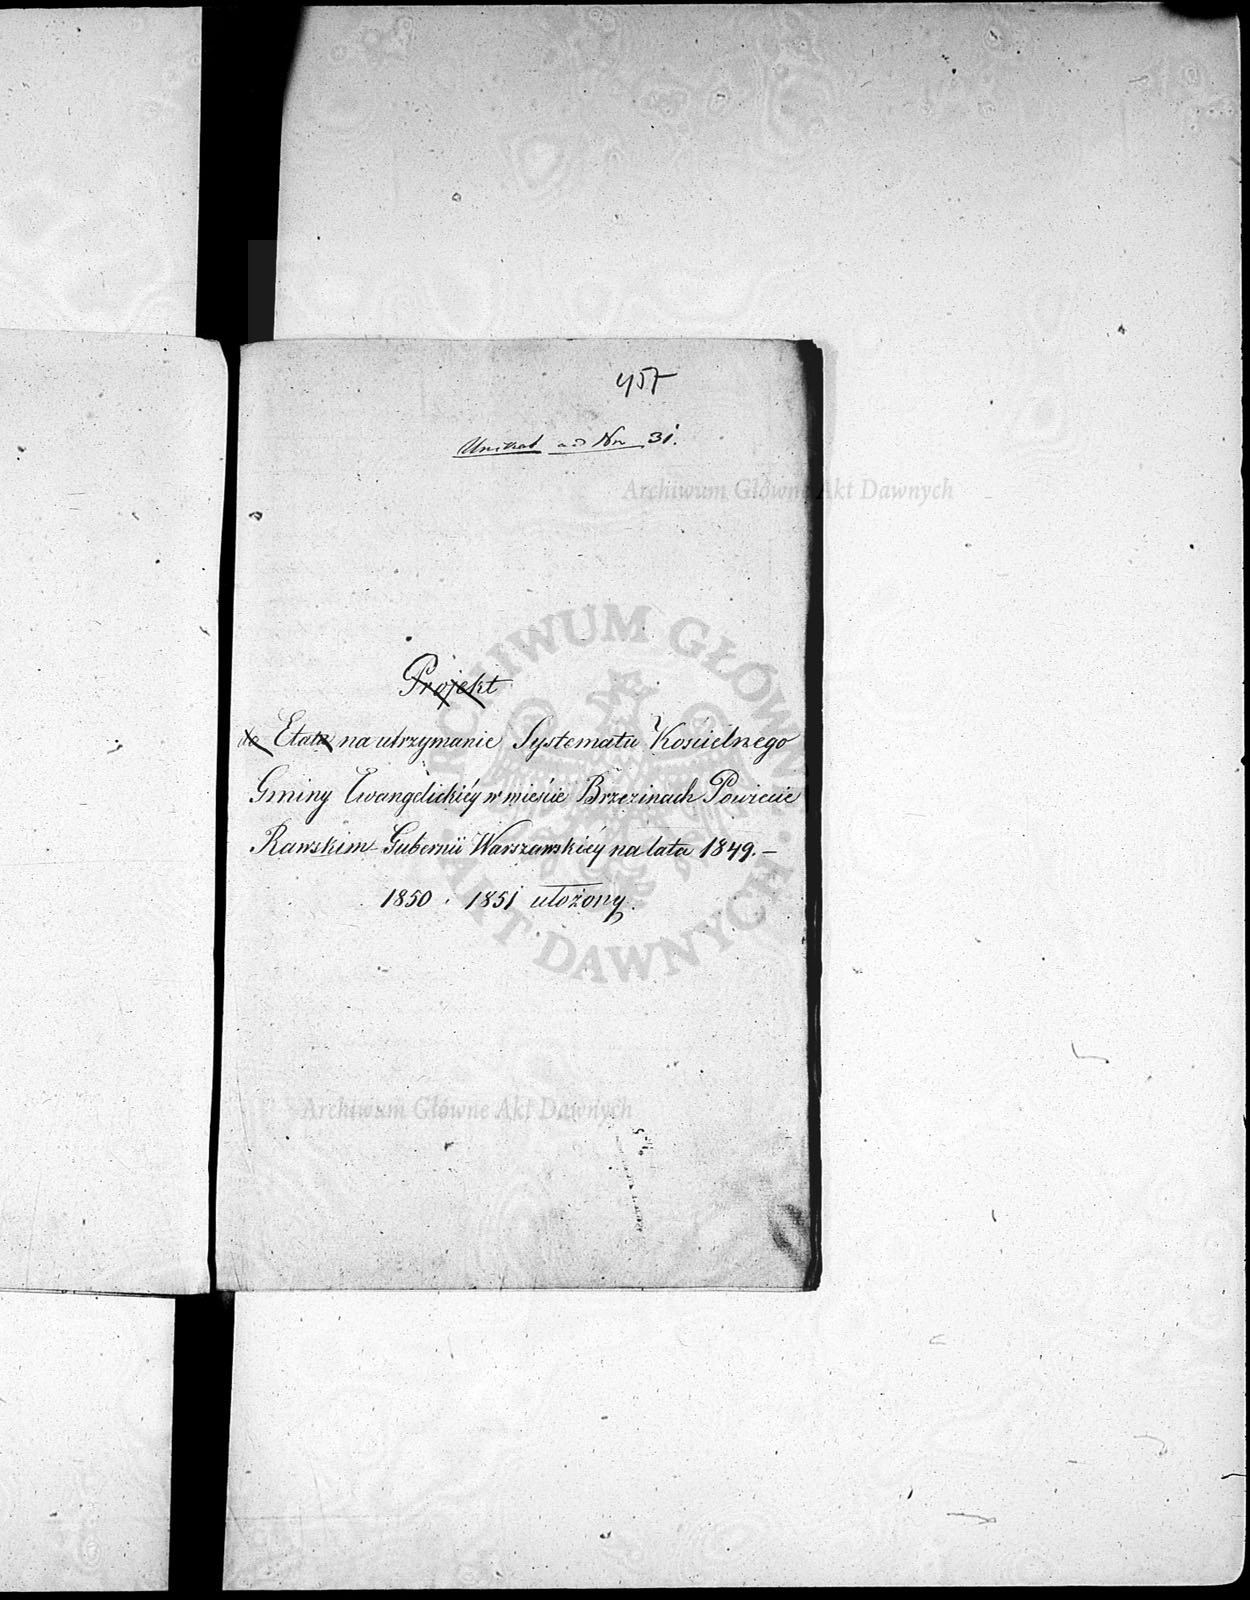 457
Unikat ad Nrn 31.
Archiwum Główne Akt Dawnych
ARCHIWUM GŁÓWNE
Projekt
do Etatu na utrzymanie Systematu Kościelnego
Gminy Ewangelickiéy w mieście Brzezinach Powiecie
Rawskim Gubernii Warszawskiéy na lata 1849. –
1850. 1851 ułożony.
AKT DAWNYCH
Archiwum Główne Akt Dawnych